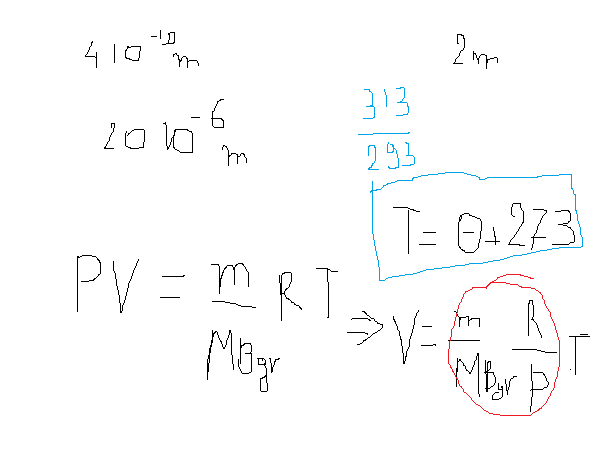 4 10⁻¹⁰ m
2 m
20 10⁻⁶ m
313
293
T = θ + 273
PV = m/MBgr RT
⇒ V = m/MBgr R/P T